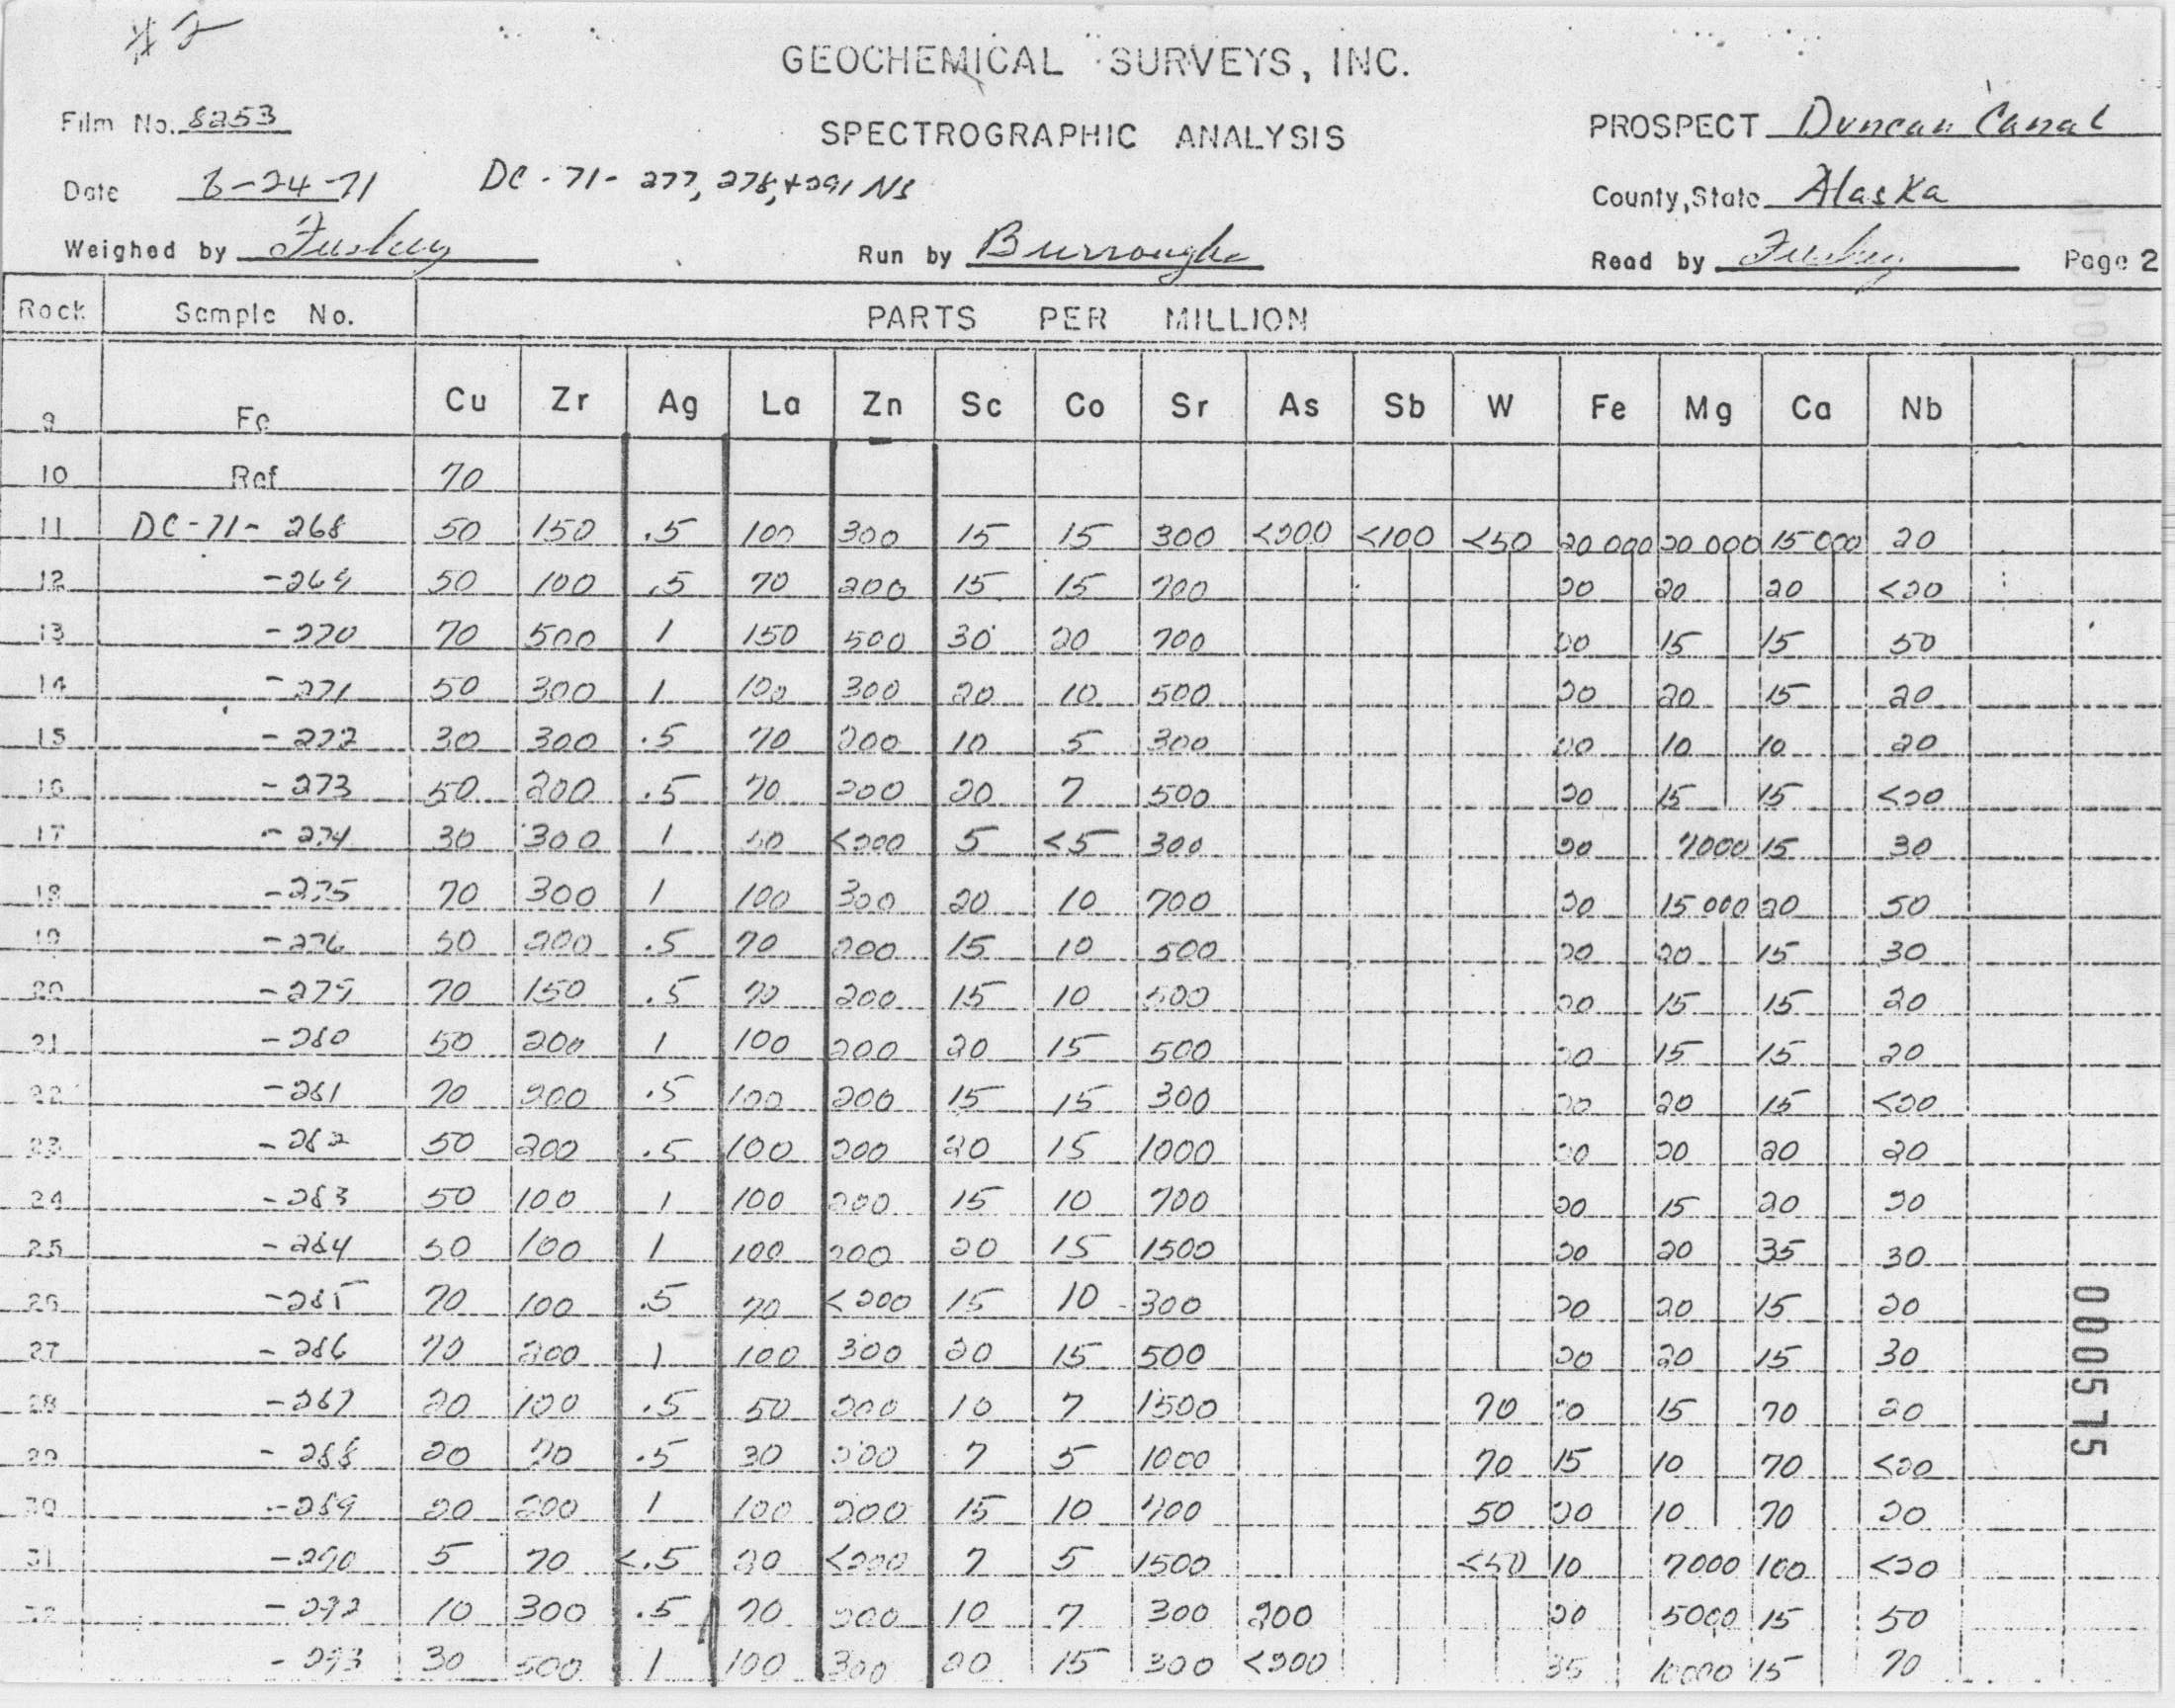 #2
GEOCHEMICAL SURVEYS, INC.
Film No. 8253
SPECTROGRAPHIC ANALYSIS
PROSPECT Duncan Canal
Date 8-24-71 DC-71- 277, 278, + 291 NS
County, State Alaska
Weighed by Run by Burroughs Read by Page 2
Rock Sample No. PARTS PER MILLION
9 Fe Cu Zr Ag La Zn Sc Co Sr As Sb W Fe Mg Ca Nb
10 Ref 70
11 DC-71- 268 50 150 .5 100 300 15 15 300 <200 <100 <50 20 000 20 000 15 000 20
12 -269 50 100 .5 70 200 15 15 700 20 20 20 <20
13 -270 70 500 1 150 500 30 20 700 20 15 15 50
14 -271 50 300 1 100 300 20 10 500 20 20 15 20
15 -272 30 300 .5 70 200 10 5 300 20 10 10 20
16 -273 50 200 .5 70 200 20 7 500 20 15 15 <20
17 -274 30 300 1 <200 5 <5 300 20 7000 15 30
18 -275 70 300 1 100 300 20 10 700 20 15 000 20 50
19 -276 50 200 .5 70 200 15 10 500 20 20 15 30
20 -279 70 150 .5 70 200 15 10 500 20 15 15 20
21 -280 50 200 1 100 200 20 15 500 20 15 15 20
22 -281 70 200 .5 100 200 15 15 300 20 20 15 <20
23 -282 50 200 .5 100 200 20 15 1000 20 20 20 20
24 -283 50 100 1 100 200 15 10 700 20 15 20 20
25 -284 50 100 1 100 200 20 15 1500 20 20 35 30
26 -285 70 100 .5 70 <200 15 10 300 20 20 15 20
27 -286 70 200 1 100 300 20 15 500 20 20 15 30
28 -287 20 100 .5 50 200 10 7 1500 70 20 15 70 20
29 -288 20 70 .5 30 200 7 5 1000 70 15 10 70 <20
30 -289 20 200 1 100 200 15 10 700 50 20 10 70 20
31 -290 5 70 <.5 20 <200 7 5 1500 <50 10 7000 100 <20
32 -292 10 300 .5 70 200 10 7 300 200 20 5000 15 50
-293 30 500 1 100 300 20 15 300 <200 35 10000 15 70
000575